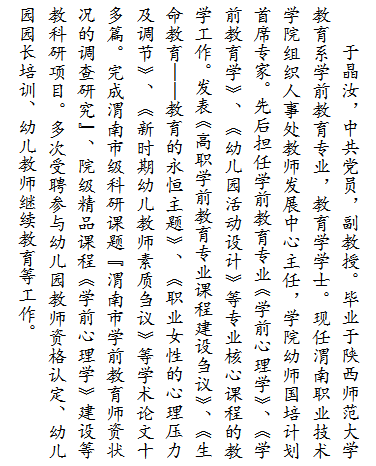 于晶汝，中共党员，副教授。毕业于陕西师范大学
教育系学前教育专业，教育学学士。现任渭南职业技术
学院组织人事处教师发展中心主任，学院幼师国培计划
首席专家。先后担任学前教育专业《学前心理学》、《学
前教育学》、《幼儿园活动设计》等专业核心课程的教
学工作。发表《高职学前教育专业课程建设刍议》、《生
命教育——教育的永恒主题》、《职业女性的心理压力
及调节》、《新时期幼儿教师素质刍议》等学术论文十
多篇。完成渭南市级科研课题『渭南市学前教育师资状
况的调查研究』、院级精品课程《学前心理学》建设等
教科研项目。多次受聘参与幼儿园教师资格认定、幼儿
园园长培训、幼儿教师继续教育等工作。